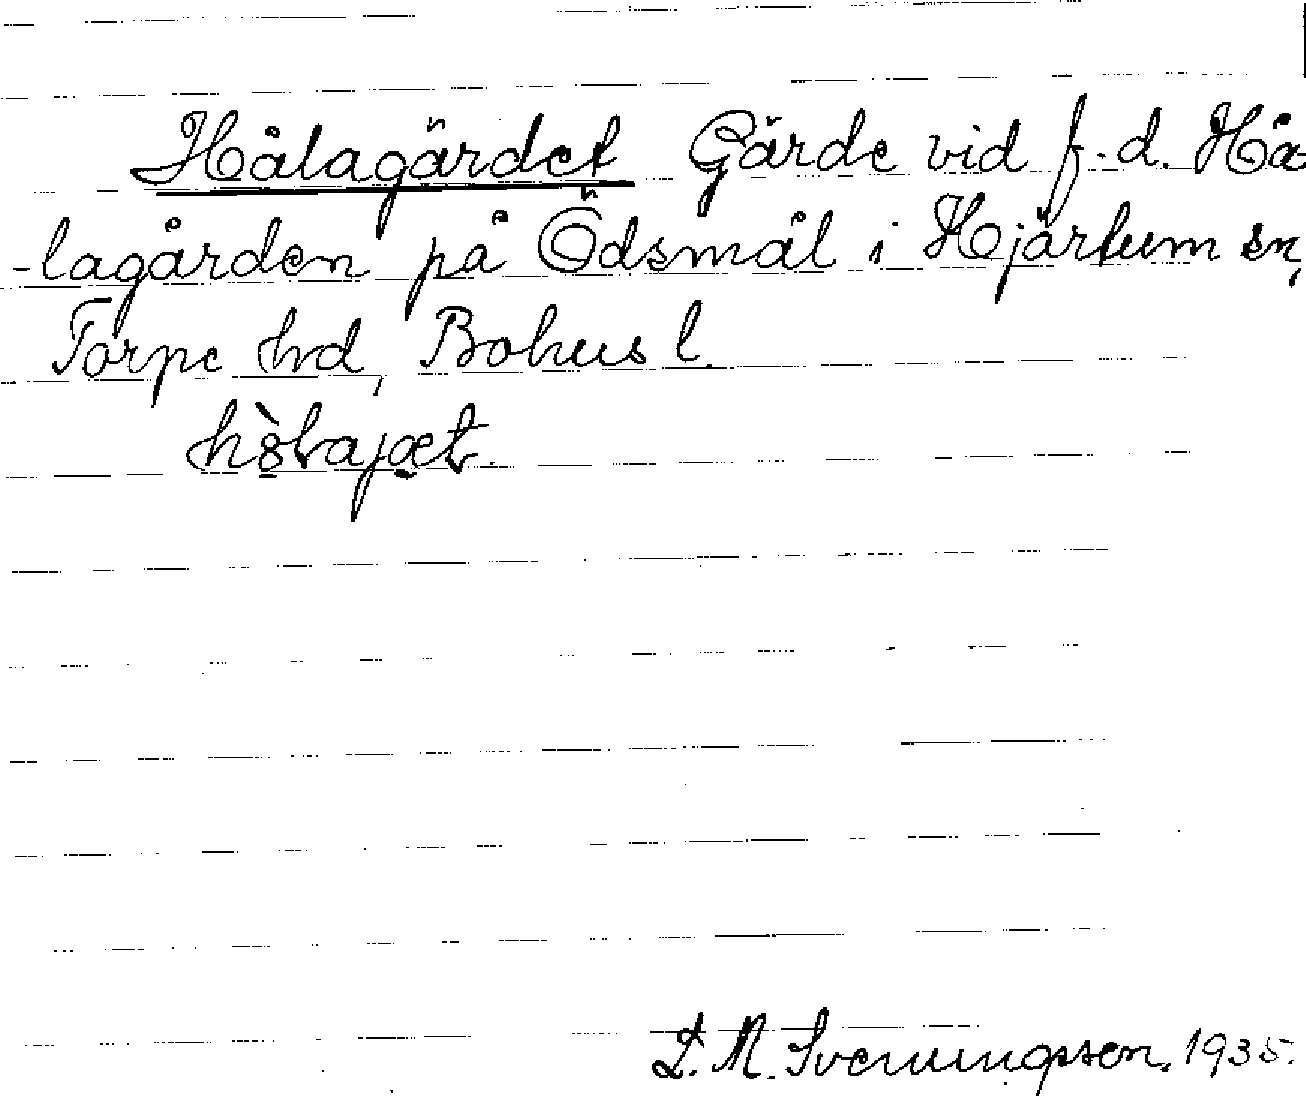 Hålagärdet Gärde vid f.d. Hå-
-lagården på Ödsmål i Hjärtum sn,
Torpe hd, Bohus l.
L. M. Svenungsson. 1935.